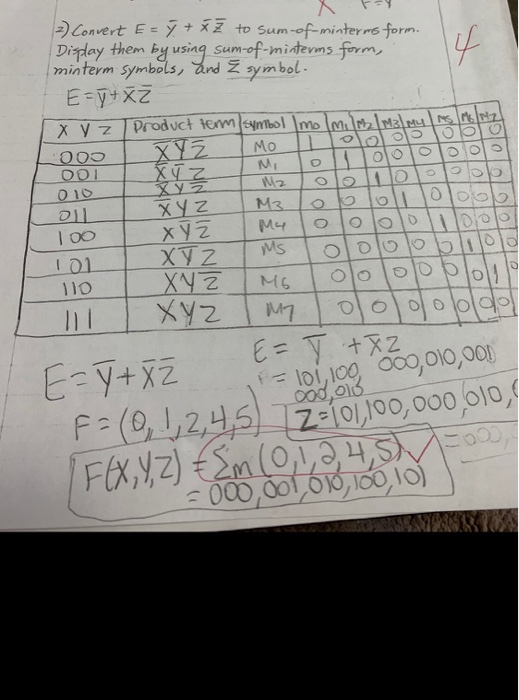 F=Y
2) Convert E = ȳ + x̄z̄ to sum-of-minterms form.
Display them by using sum-of-minterms form,
minterm symbols, and Σ symbol.
4
E=ȳ+x̄z̄
X Y Z Product term symbol m0 M1 M2 M3 M4 M5 M6 M7
000 X̄ȲZ̄ M0 1 0 0 0 0 0 0 0
001 X̄ȲZ M1 0 1 0 0 0 0 0 0
010 X̄YZ̄ M2 0 0 1 0 0 0 0 0
011 X̄YZ M3 0 0 0 1 0 0 0 0
100 XȲZ̄ M4 0 0 0 0 1 0 0 0
101 XȲZ M5 0 0 0 0 0 1 0 0
110 XYZ̄ M6 0 0 0 0 0 0 1 0
111 XYZ M7 0 0 0 0 0 0 0
E = Ȳ + X̄Z
E=Ȳ+X̄Z̄
= 101,100, 000,010,001
000,010
F=(0,1,2,4,5)
Σ=101,100,000,010,
F(X,Y,Z) = Σm(0,1,2,4,5)
=000,
= 000,001,010,100,101